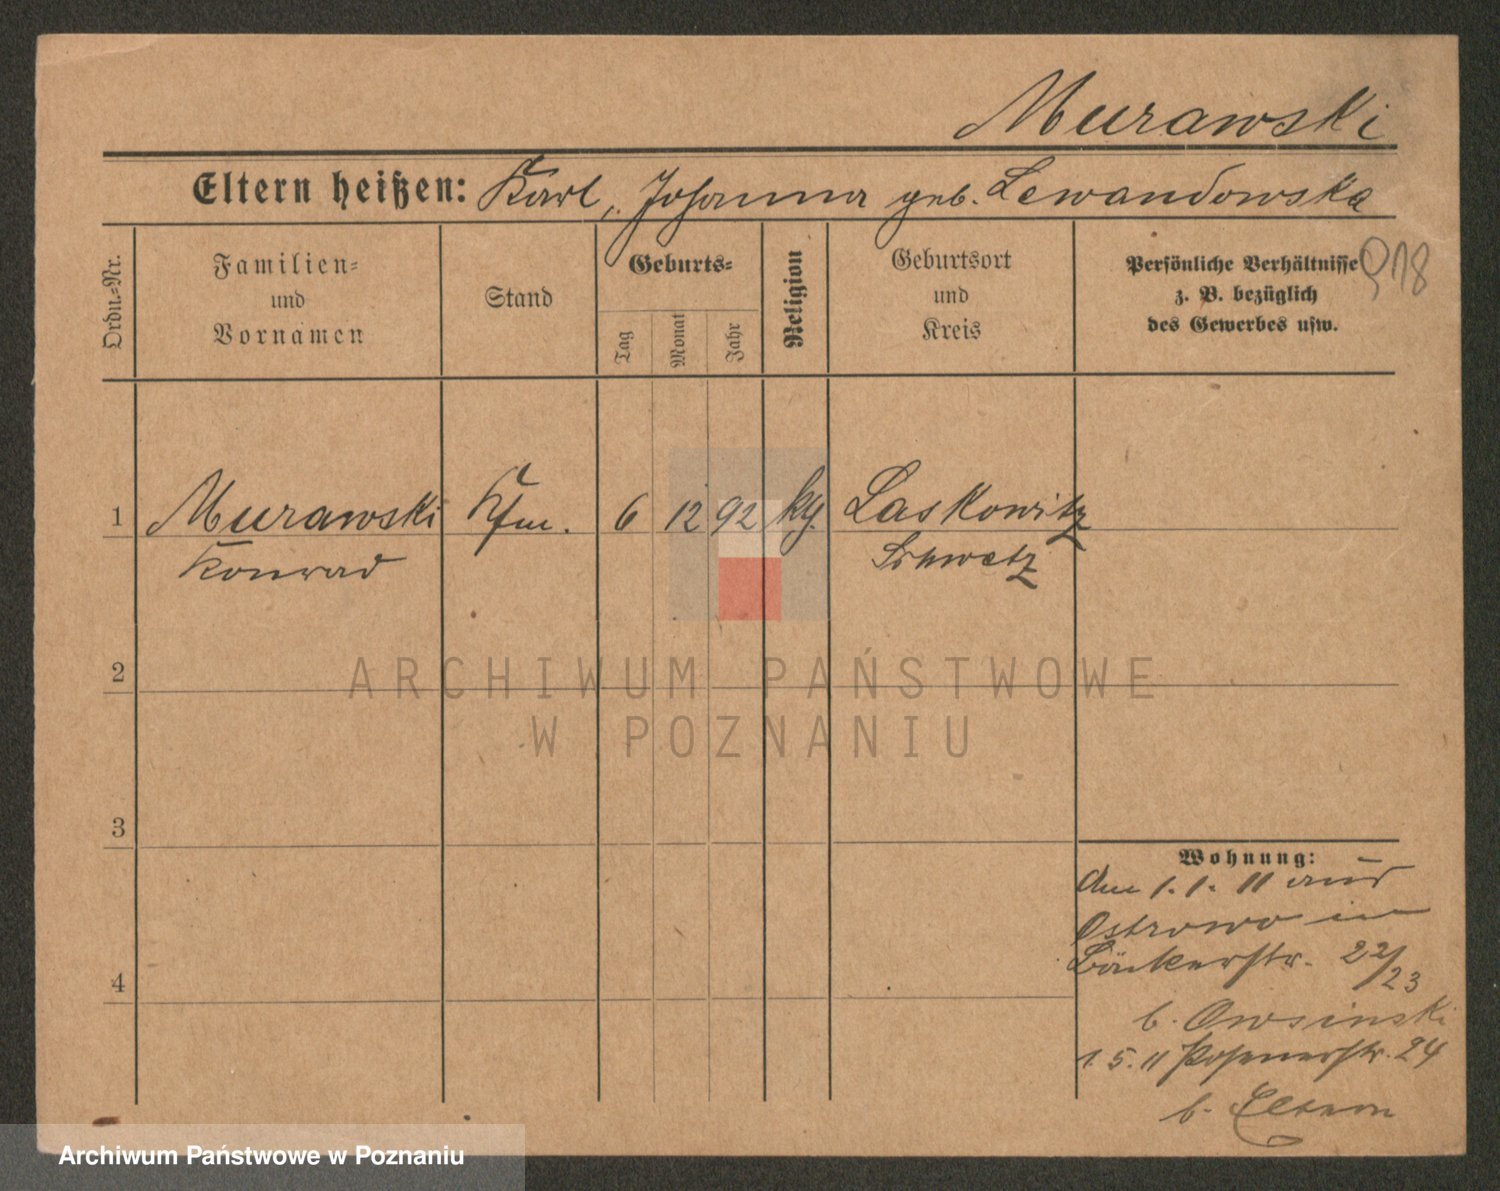 Murawski
Eltern heißen: Karl, Johanna geb. Lewandowska
Ordn.-Nr.
Familien-
und
Vornamen
Stand
Geburts-
Tag
Monat
Jahr
Religion
Geburtsort
und
Kreis
Persönliche Verhältnisse
z. B. bezüglich
des Gewerbes usw.
918
1 Murawski Kfm. 6 12 92 kg. Laskowitz
Konrad Schwetz
2
3
4
Wohnung:
Am 1.1.11 aus
Ostrowo in
Bäckerstr. 22/23
b. Owsinski
1.5.11 Posenerstr. 24
b. Eltern
ARCHIWUM PAŃSTWOWE
W POZNANIU
Archiwum Państwowe w Poznaniu